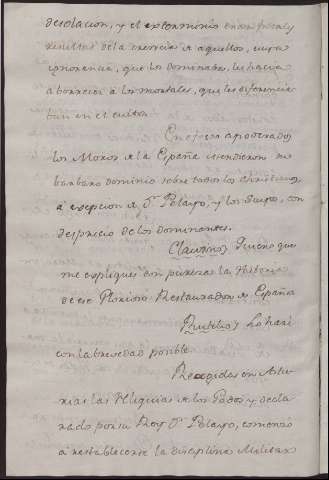 desolacion, y el exterminio eran fatales
resultas de la creencia de aquellos, cuya
ignorancia, que los dominaba, les hacia
aborrecer à los mortales, que les diferencia
ban en el culto.
apoderados
los Moros de la España extendieron su
barbaro dominio sobre todos los Christianos
à excepcion de Dn. Pelayo, y los Suyos, con
desprecio de los dominantes.
Claudino, Quiero que
me expliques con pureza la Historia
de ese Glorioso Restaurador de España
Rutilio, Lo haré
con la brevedad posible
Recogidas en Astu
rias las Reliquias de los Godos y decla
rado por su Rey Dn. Pelayo, comenzo
à restablecerse la disciplina Militar